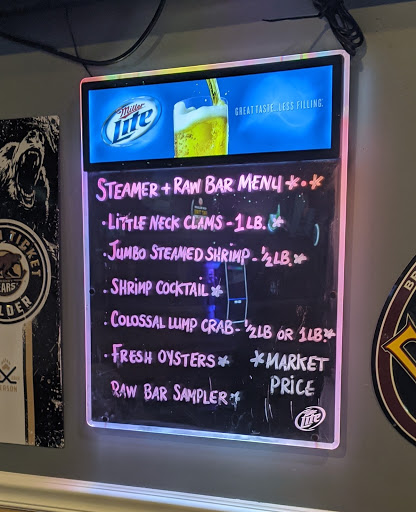 Miller
Lite
GREAT TASTE. LESS FILLING.
STEAMER + RAW BAR MENU *•*
• LITTLE NECK CLAMS - 1 LB. *
• JUMBO STEAMED SHRIMP - 1/2 LB. *
• SHRIMP COCKTAIL *
• COLOSSAL LUMP CRAB - 1/2 LB OR 1 LB *
• FRESH OYSTERS *
RAW BAR SAMPLER *
*MARKET
PRICE
Lite